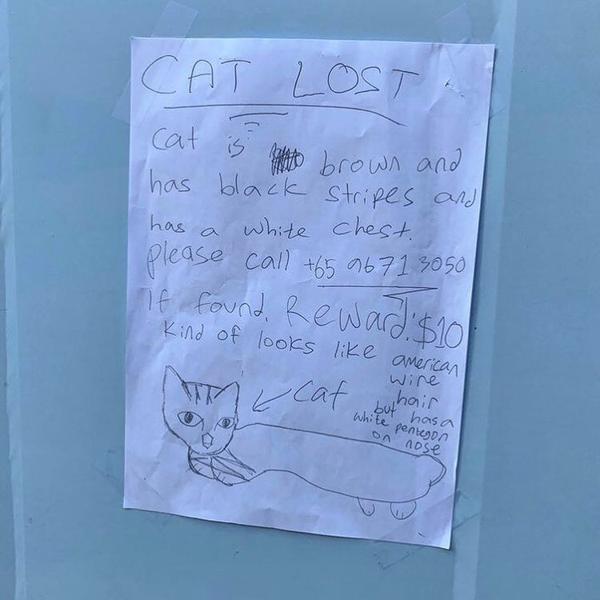 CAT LOST
cat is brown and
has black stripes and
has a white chest.
please call +65 9671 3050
If found. Reward: $10
Kind of looks like american
wire
hair
but has a
white pentegon
on nose
cat